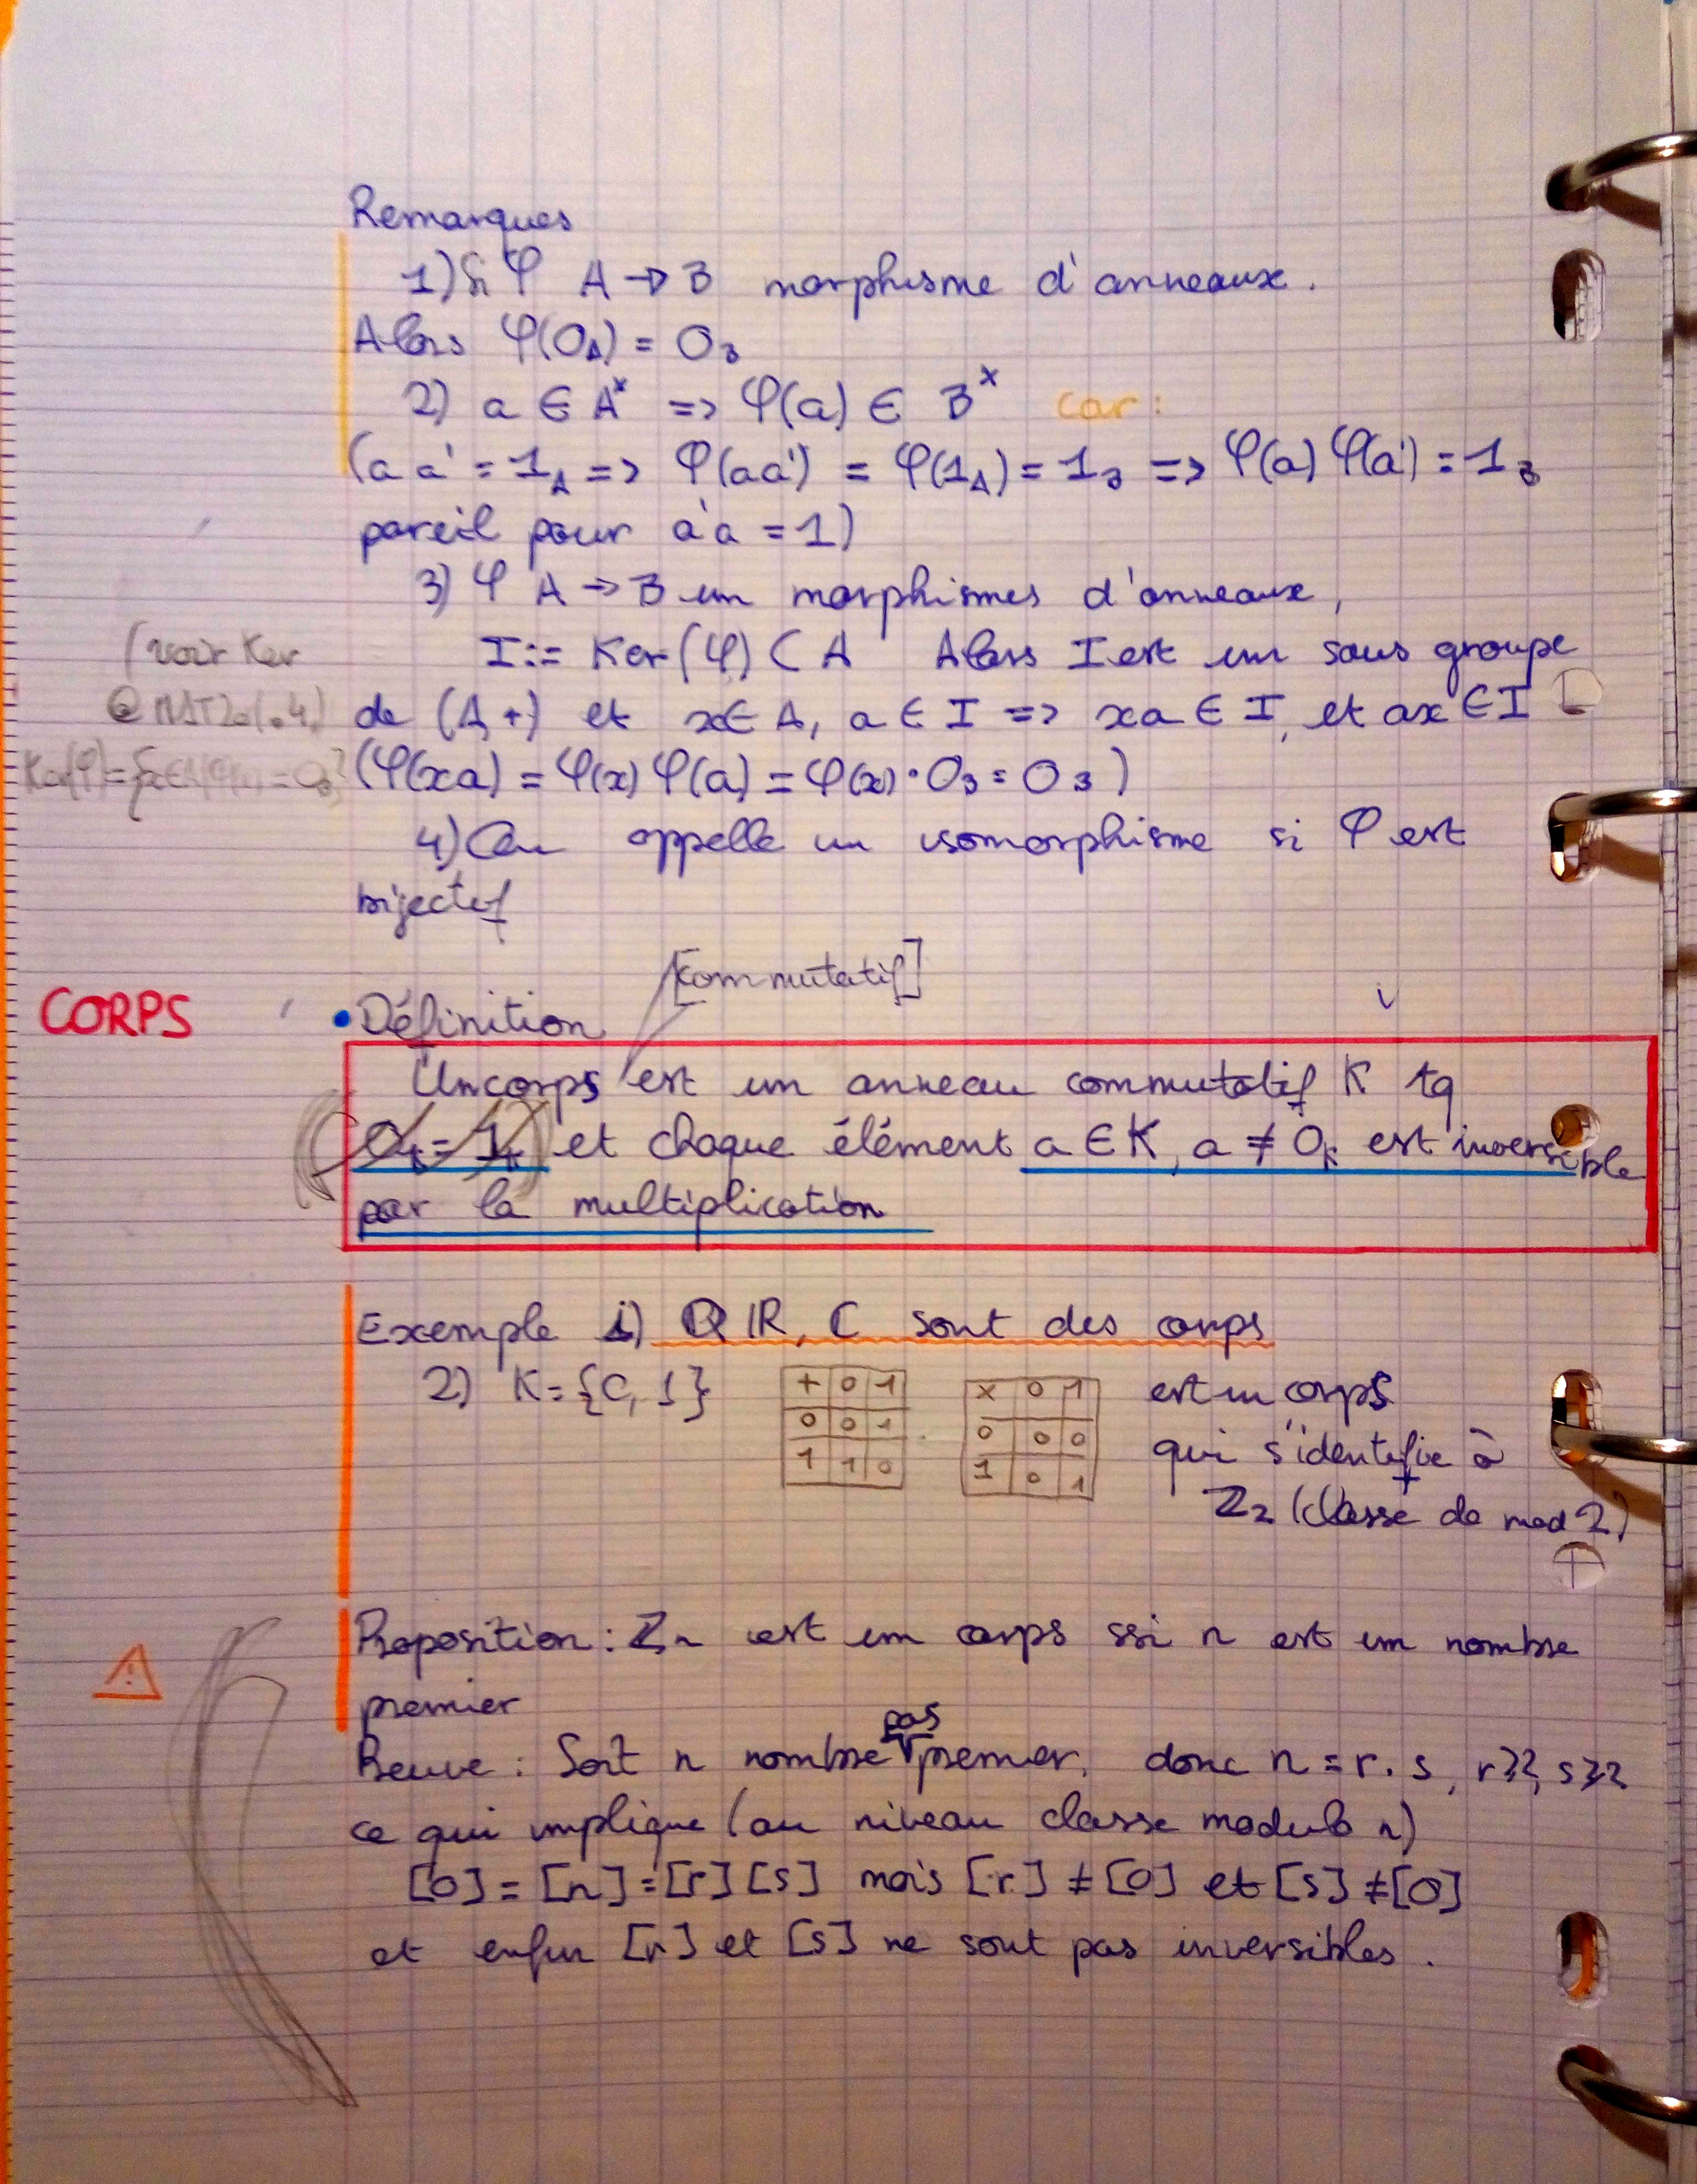 Remarques
1) Si φ A → B morphisme d'anneaux.
Alors φ(0_A) = 0_B
2) a ∈ A^x => φ(a) ∈ B^x car :
(a a' = 1_A => φ(aa') = φ(1_A) = 1_B => φ(a) φ(a') = 1_B
pareil pour a'a = 1)
3) φ A → B un morphismes d'anneaux,
(voir Ker
I := Ker(φ) ⊂ A Alors I est un sous groupe
de (A, +) et x ∈ A, a ∈ I => xa ∈ I, et ax ∈ I
(φ(xa) = φ(x) φ(a) = φ(x) · 0_B = 0_B)
4) On appelle un isomorphisme si φ est
bijectif
[commutatif]
CORPS
• Définition
Un corps est un anneau commutatif K tq
0_K = 1_K et chaque élément a ∈ K, a ≠ 0_K est inversible
par la multiplication
Exemple 1) Q, R, C sont des corps
2) K = {0, 1} + 0 1 x 0 1 est un corps
0 0 1 0 0 0 qui s'identifie à
1 1 0 1 0 1 Z_2 (classe de mod 2)
Proposition : Z_n est un corps ssi n est un nombre
premier
Preuve : Soit n nombre pas premier, donc n = r . s, r ≥ 2, s ≥ 2
ce qui implique (au niveau classe modulo n)
[0] = [n] = [r] [s] mais [r] ≠ [0] et [s] ≠ [0]
et enfin [r] et [s] ne sont pas inversibles.